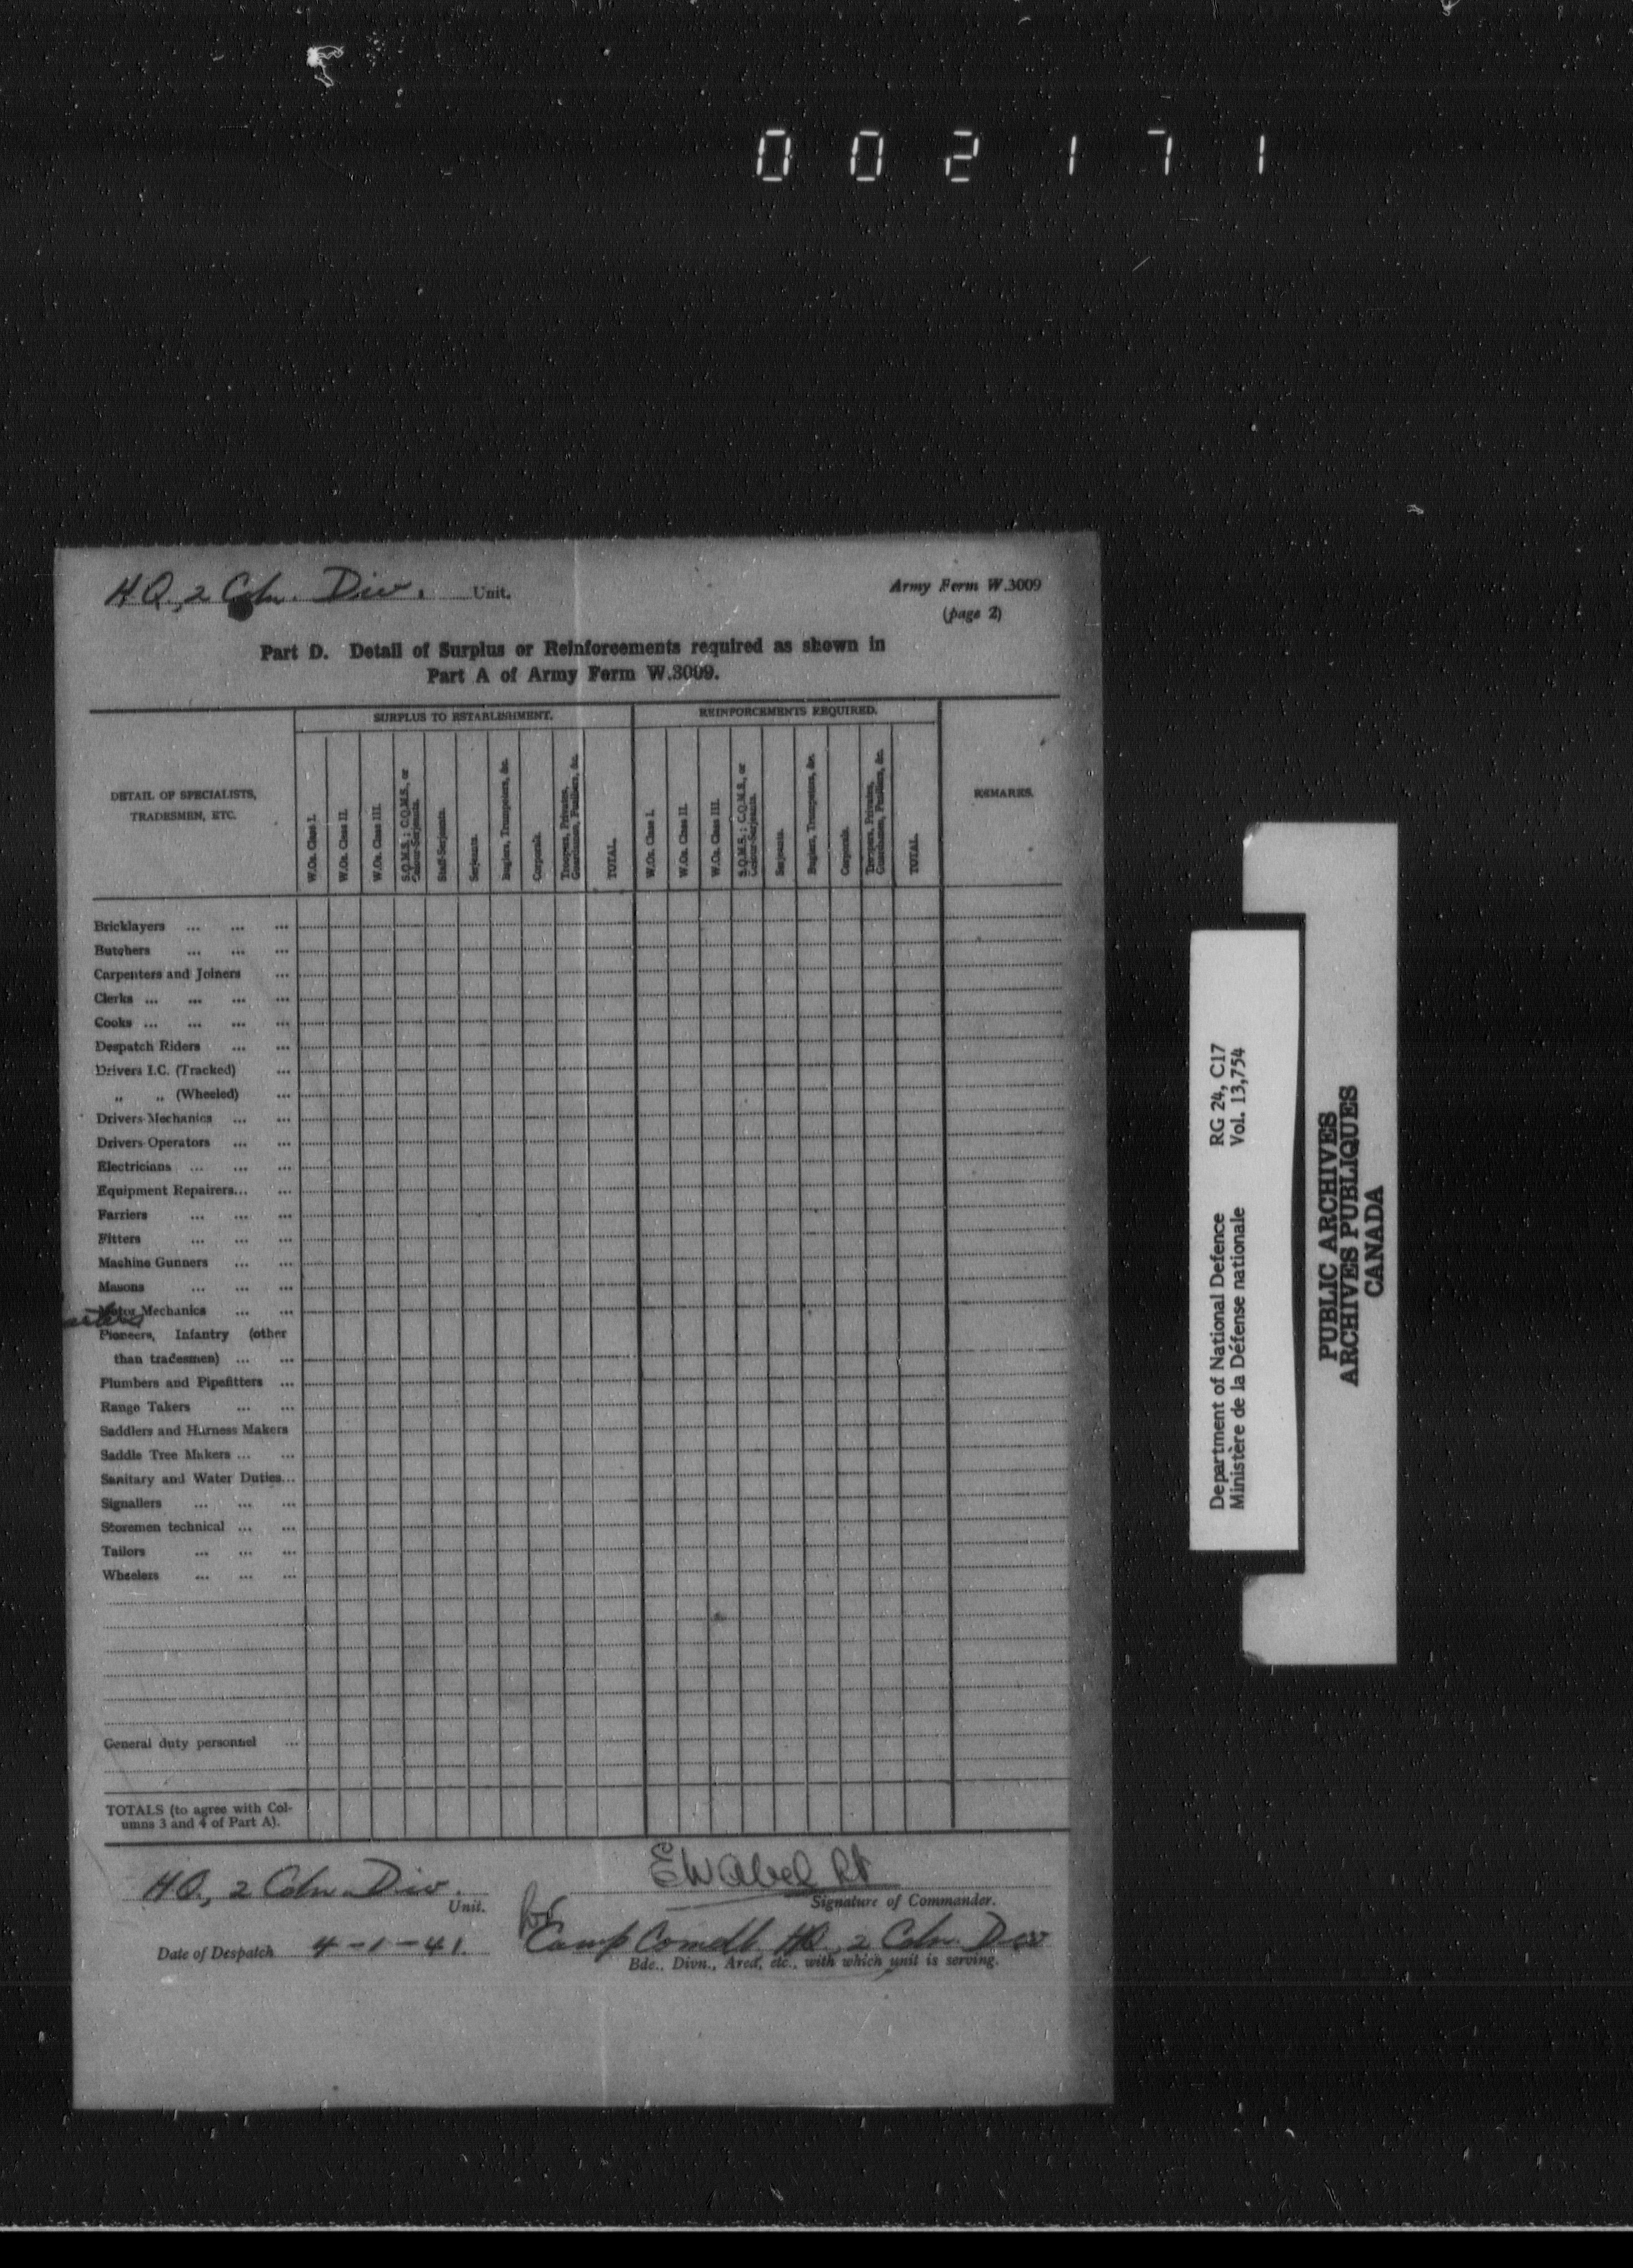 002171
HQ, 2 Cdn. Div. Unit.
Army Form W.3009
(page 2)
Part D. Detail of Surplus or Reinforcements required as shown in
Part A of Army Form W.3009.
SURPLUS TO ESTABLISHMENT.
REINFORCEMENTS REQUIRED.
DETAIL OF SPECIALISTS,
TRADESMEN, ETC.
W.Os. Class I.
W.Os. Class II.
W.Os. Class III.
S.Q.M.S.; C.Q.M.S., or
Colour-Serjeants.
Staff-Serjeants.
Serjeants.
Buglers, Trumpeters, &c.
Corporals.
Troopers, Privates,
Guardsmen, Fusiliers, &c.
TOTAL.
W.Os. Class I.
W.Os. Class II.
W.Os. Class III.
S.Q.M.S.; C.Q.M.S., or
Colour-Serjeants.
Serjeants.
Buglers, Trumpeters, &c.
Corporals.
Troopers, Privates,
Guardsmen, Fusiliers, &c.
TOTAL.
REMARKS.
Bricklayers ... ... ...
Butchers ... ... ...
Carpenters and Joiners ...
Clerks ... ... ... ...
Cooks ... ... ... ...
Despatch Riders ... ...
Drivers I.C. (Tracked) ...
„ „ (Wheeled) ...
Drivers-Mechanics ... ...
Drivers-Operators ... ...
Electricians ... ... ...
Equipment Repairers... ...
Farriers ... ... ...
Fitters ... ... ...
Machine Gunners ... ...
Masons ... ... ...
Motor Mechanics ... ...
Pioneers, Infantry (other
than tradesmen) ... ...
Plumbers and Pipefitters ...
Range Takers ... ...
Saddlers and Harness Makers
Saddle Tree Makers ... ...
Sanitary and Water Duties...
Signallers ... ... ...
Storemen technical ... ...
Tailors ... ... ...
Wheelers ... ... ...
General duty personnel ...
TOTALS (to agree with Col-
umns 3 and 4 of Part A).
HQ, 2 Cdn. Div.
Unit.
EW Abel Lt
Signature of Commander.
Date of Despatch 4-1-41.
for Camp Comdt. HQ, 2 Cdn. Div
Bde., Divn., Area, etc., with which unit is serving.
Department of National Defence RG 24, C17
Ministère de la Défense nationale Vol. 13,754
PUBLIC ARCHIVES
ARCHIVES PUBLIQUES
CANADA